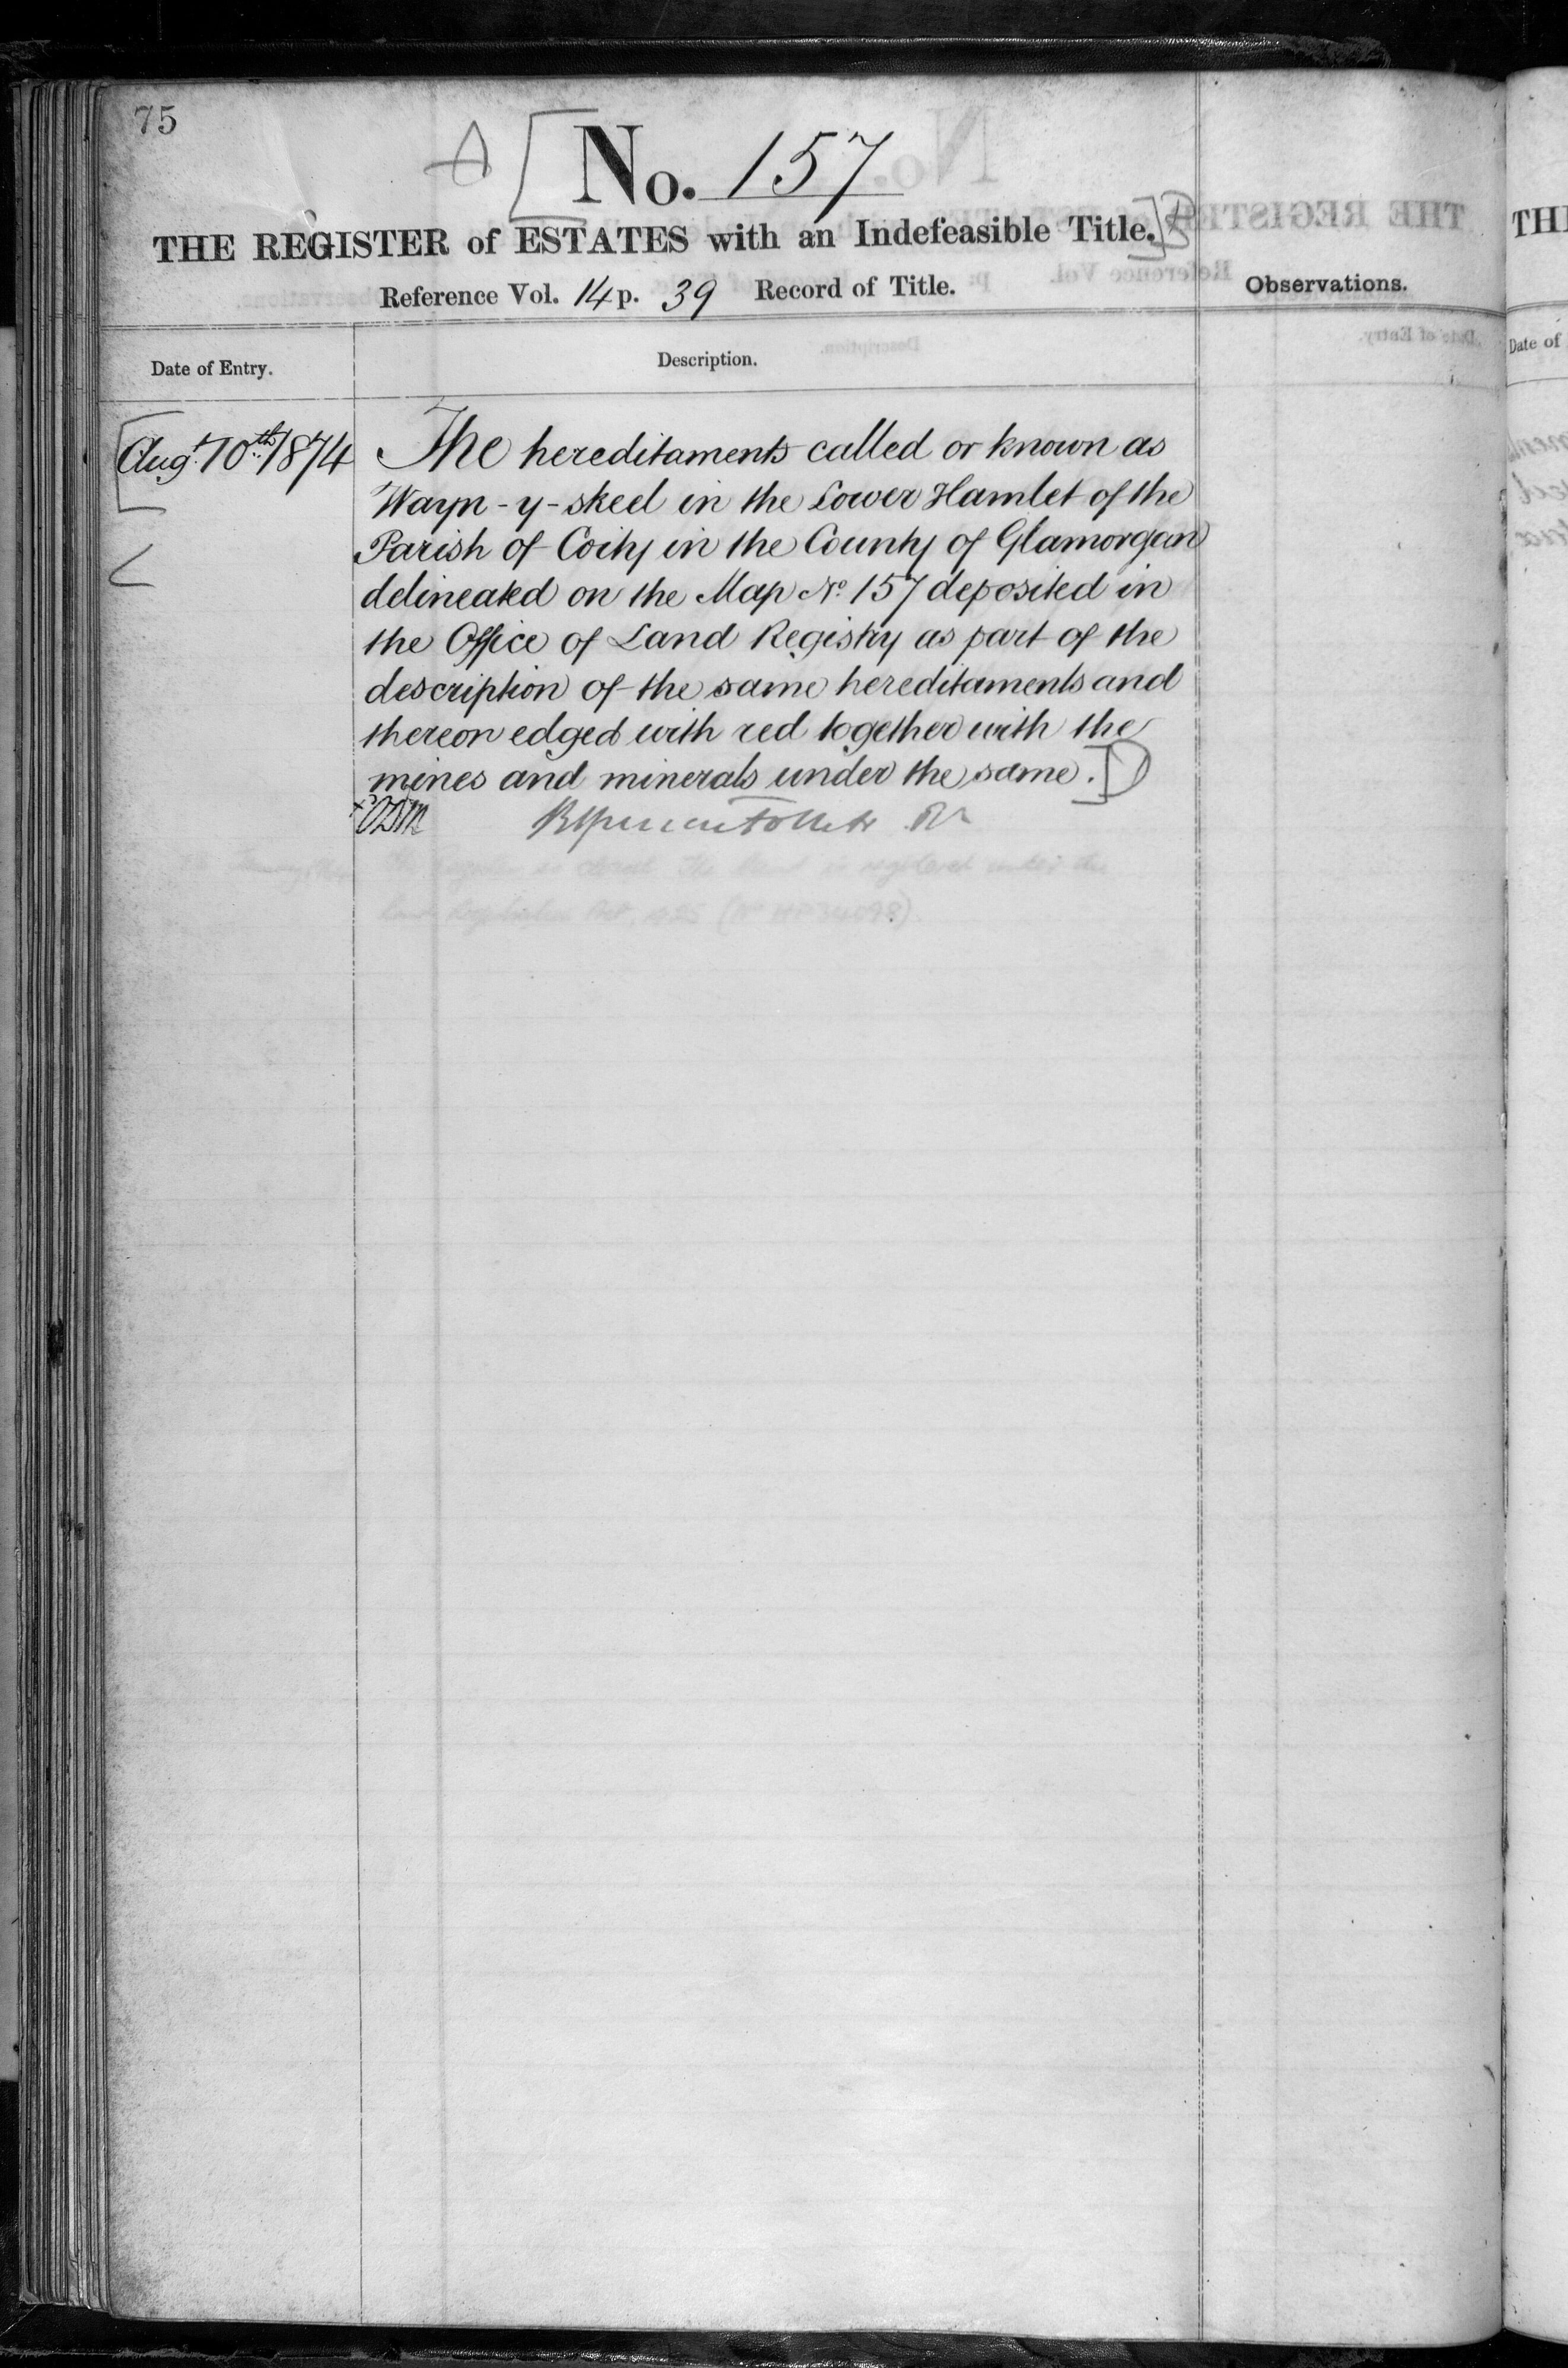 75
A [ No. 157
THE REGISTER of ESTATES with an Indefeasible Title. ] B
Reference Vol. 14 p. 39 Record of Title.
Observations.
Date of Entry.
Description.
Augt. 10th. 1874
The hereditaments called or known as
Wayn-y-skeel in the Lower Hamlet of the
Parish of Coity in the County of Glamorgan
delineated on the Map No. 157 deposited in
the Office of Land Registry as part of the
description of the same hereditaments and
thereon edged with red together with the
mines and minerals under the same. ] D
C
is registered under the
(No
THE
Date of